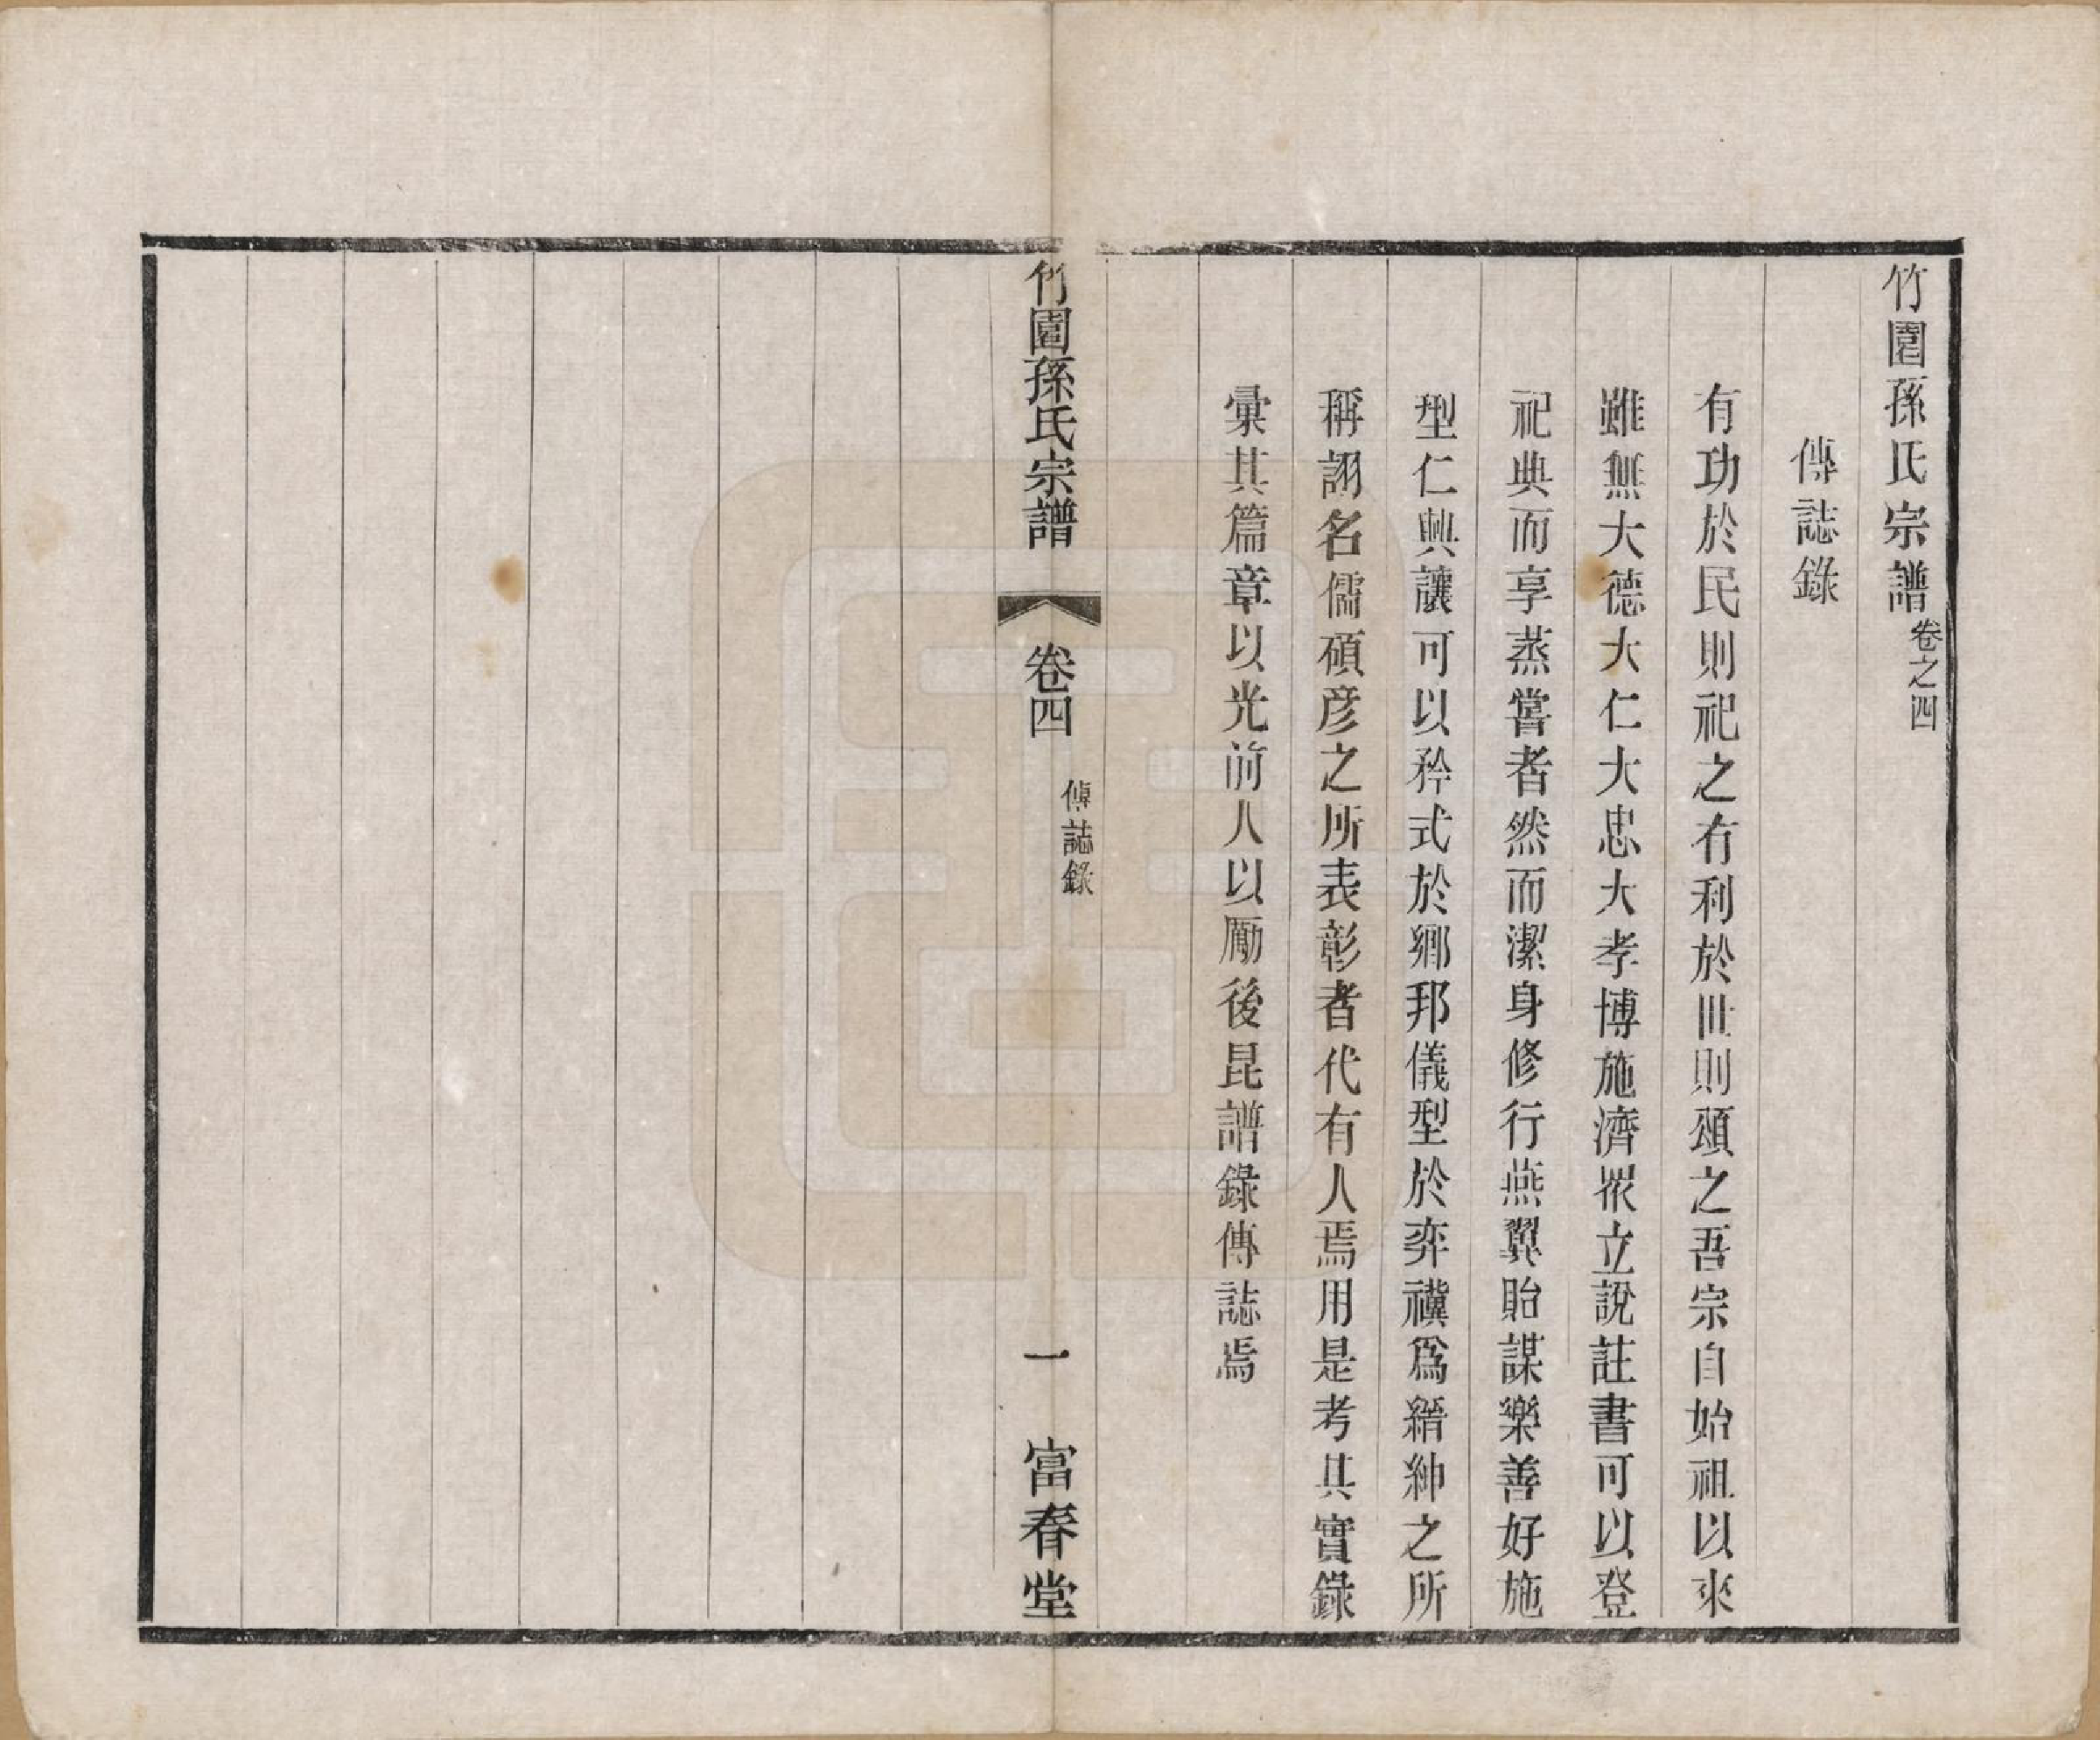 竹園孫氏宗譜卷之四
傳誌錄
有功於民則祀之有利於世則頌之吾宗自始祖以來
雖無大德大仁大忠大孝博施濟眾立說註書可以登
祀典而享蒸嘗者然而潔身修行燕翼貽謀樂善好施
型仁興讓可以矜式於鄉邦儀型於奕禩為縉紳之所
稱詡名儒碩彥之所表彰者代有人焉用是考其實錄
彙其篇章以光前人以勵後昆譜錄傳誌焉
竹園孫氏宗譜
卷四
傳誌錄
一
富春堂